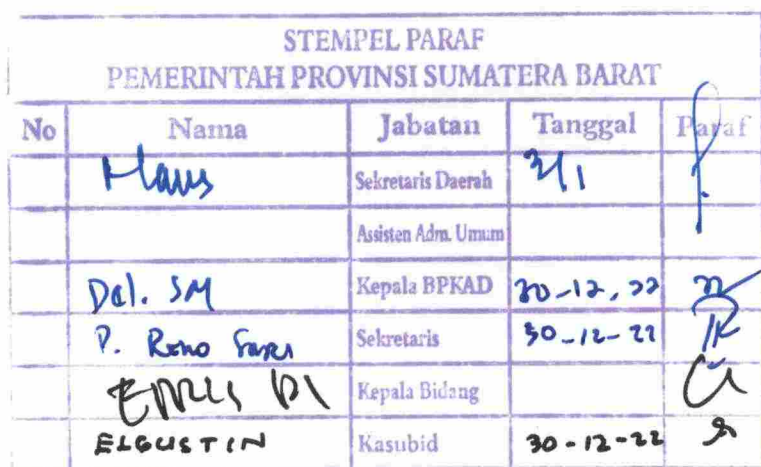 STEMPEL PARAF
PEMERINTAH PROVINSI SUMATERA BARAT
No Nama Jabatan Tanggal Paraf
Hans Sekretaris Daerah 2/1
Assisten Adm. Umum
Del. SM Kepala BPKAD 30-12, 22
P. Reno Sari Sekretaris 30-12-22
Kepala Bidang
ELGUSTIN Kasubid 30-12-22